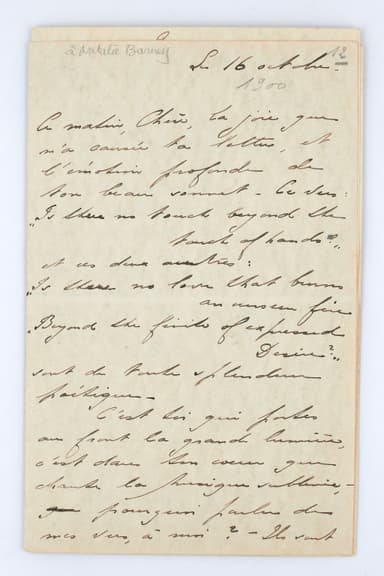 à Natalie Barney
12
Le 16 octobre.
1900
Ce matin, Chère, la joie que
m'a causée ta lettre, et
l'émotion profonde de
ton beau sonnet - Ce vers :
"Is there no touch beyond the
touch of hands?"
et ces deux autres :
"Is there no love that burns
an unseen fire
Beyond the finite of expressed
Desire?"
sont de toute splendeur
poétique -
C'est toi qui portes
au front la grande lumière,
c'est dans ton coeur que
chante la musique sublime, -
pourquoi parler de
mes vers, à moi ? - Ils sont